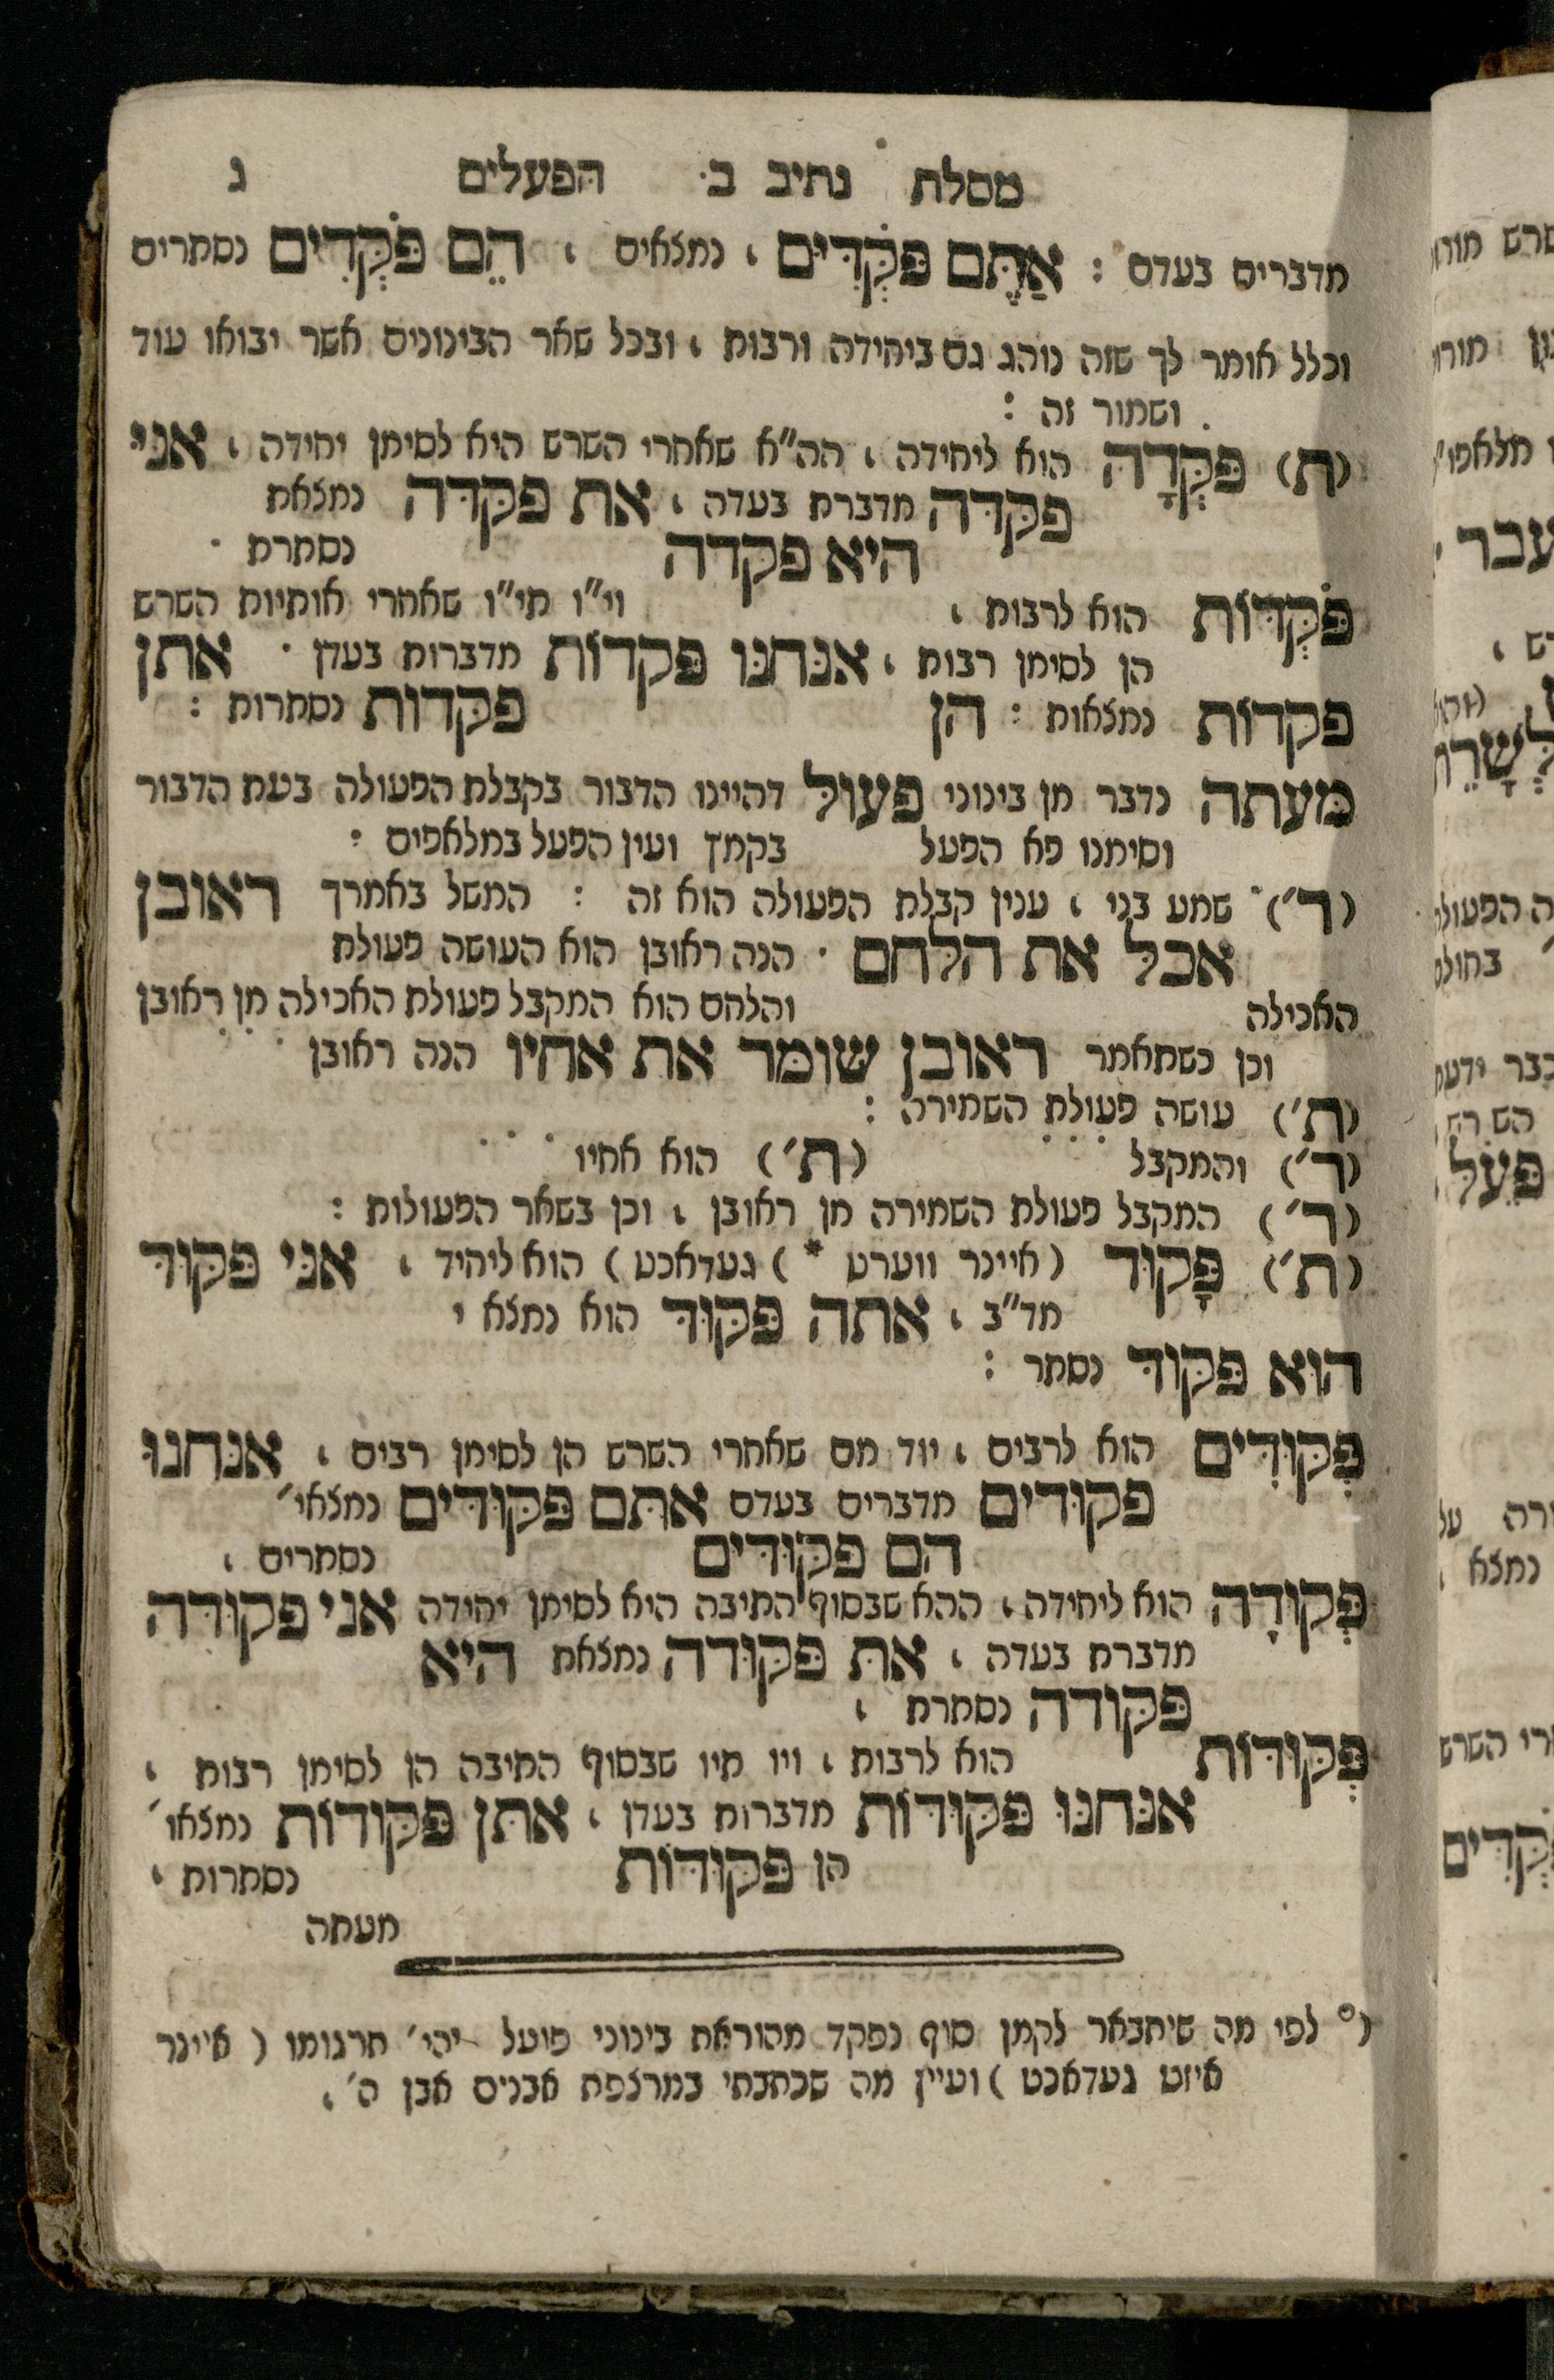 מסלת נתיב ב׳ הפעלים ג
מדברים בעדם : אַתֶּם פֹּקְדִים , נמצאים , הֵם פֹּקְדִים נסתרים
וכלל אומר לך שזה נוהג גם ביחידה ורבות , ובכל שאר הבינונים אשר יבואו עוד
ושמור זה :
(ת) פֹּקְדָה הוא ליחידה , הה״א שאחרי השרש היא לסימן יחידה , אני
פקדה מדברת בעדה , את פקדה נמצאת
היא פקדה נסתרת ·
פֹּקְדוֹת הוא לרבות , וי״ו תי״ו שאחרי אותיות השרש
הן לסימן רבות , אנחנו פקדות מדברות בעדן · אתן
פקדות נמצאות : הן פקדות נסתרות :
מעתה נדבר מן בינוני פעול דהיינו הדבור בקבלת הפעולה בעת הדבור
וסימנו פא הפעל בקמץ ועין הפעל במלאפים :
(ר׳) שמע בני , ענין קבלת הפעולה הוא זה : המשל באמרך ראובן
אכל את הלחם · הנה ראובן הוא העושה פעולת
האכילה והלחם הוא המקבל פעולת האכילה מן ראובן
וכן כשתאמר ראובן שומר את אחיו הנה ראובן
(ת׳) עושה פעולת השמירה :
(ר׳) והמקבל (ת׳) הוא אחיו
(ר׳) המקבל פעולת השמירה מן ראובן , וכן בשאר הפעולות :
(ת׳) פָּקוּד (איינר ווערט *) געדאכט) הוא ליחיד , אני פקוד
מד״ב , אתה פקוד הוא נמצא י
הוא פקוד נסתר :
פְּקוּדִים הוא לרבים , יוד מם שאחרי השרש הן לסימן רבים , אנחנו
פקודים מדברים בעדם אתם פקודים נמצאי׳
הם פקודים נסתרים ,
פְּקוּדָה הוא ליחידה , ההא שבסוף התיבה היא לסימן יחידה אני פקודה
מדברת בעדה , את פקודה נמצאת היא
פקודה נסתרת ,
פְּקוּדוֹת הוא לרבות , ויו תיו שבסוף התיבה הן לסימן רבות ,
אנחנו פקודות מדברות בעדן , אתן פקודות נמצאו׳
הן פקודות נסתרות ,
מעתה
(° לפי מה שיתבאר לקמן סוף נפקד מהוראת בינוני פועל יהי׳ תרגומו ( איינר
איזט געדאכט ) ועיין מה שכתבתי במרצפת אבנים אבן ה׳ ,